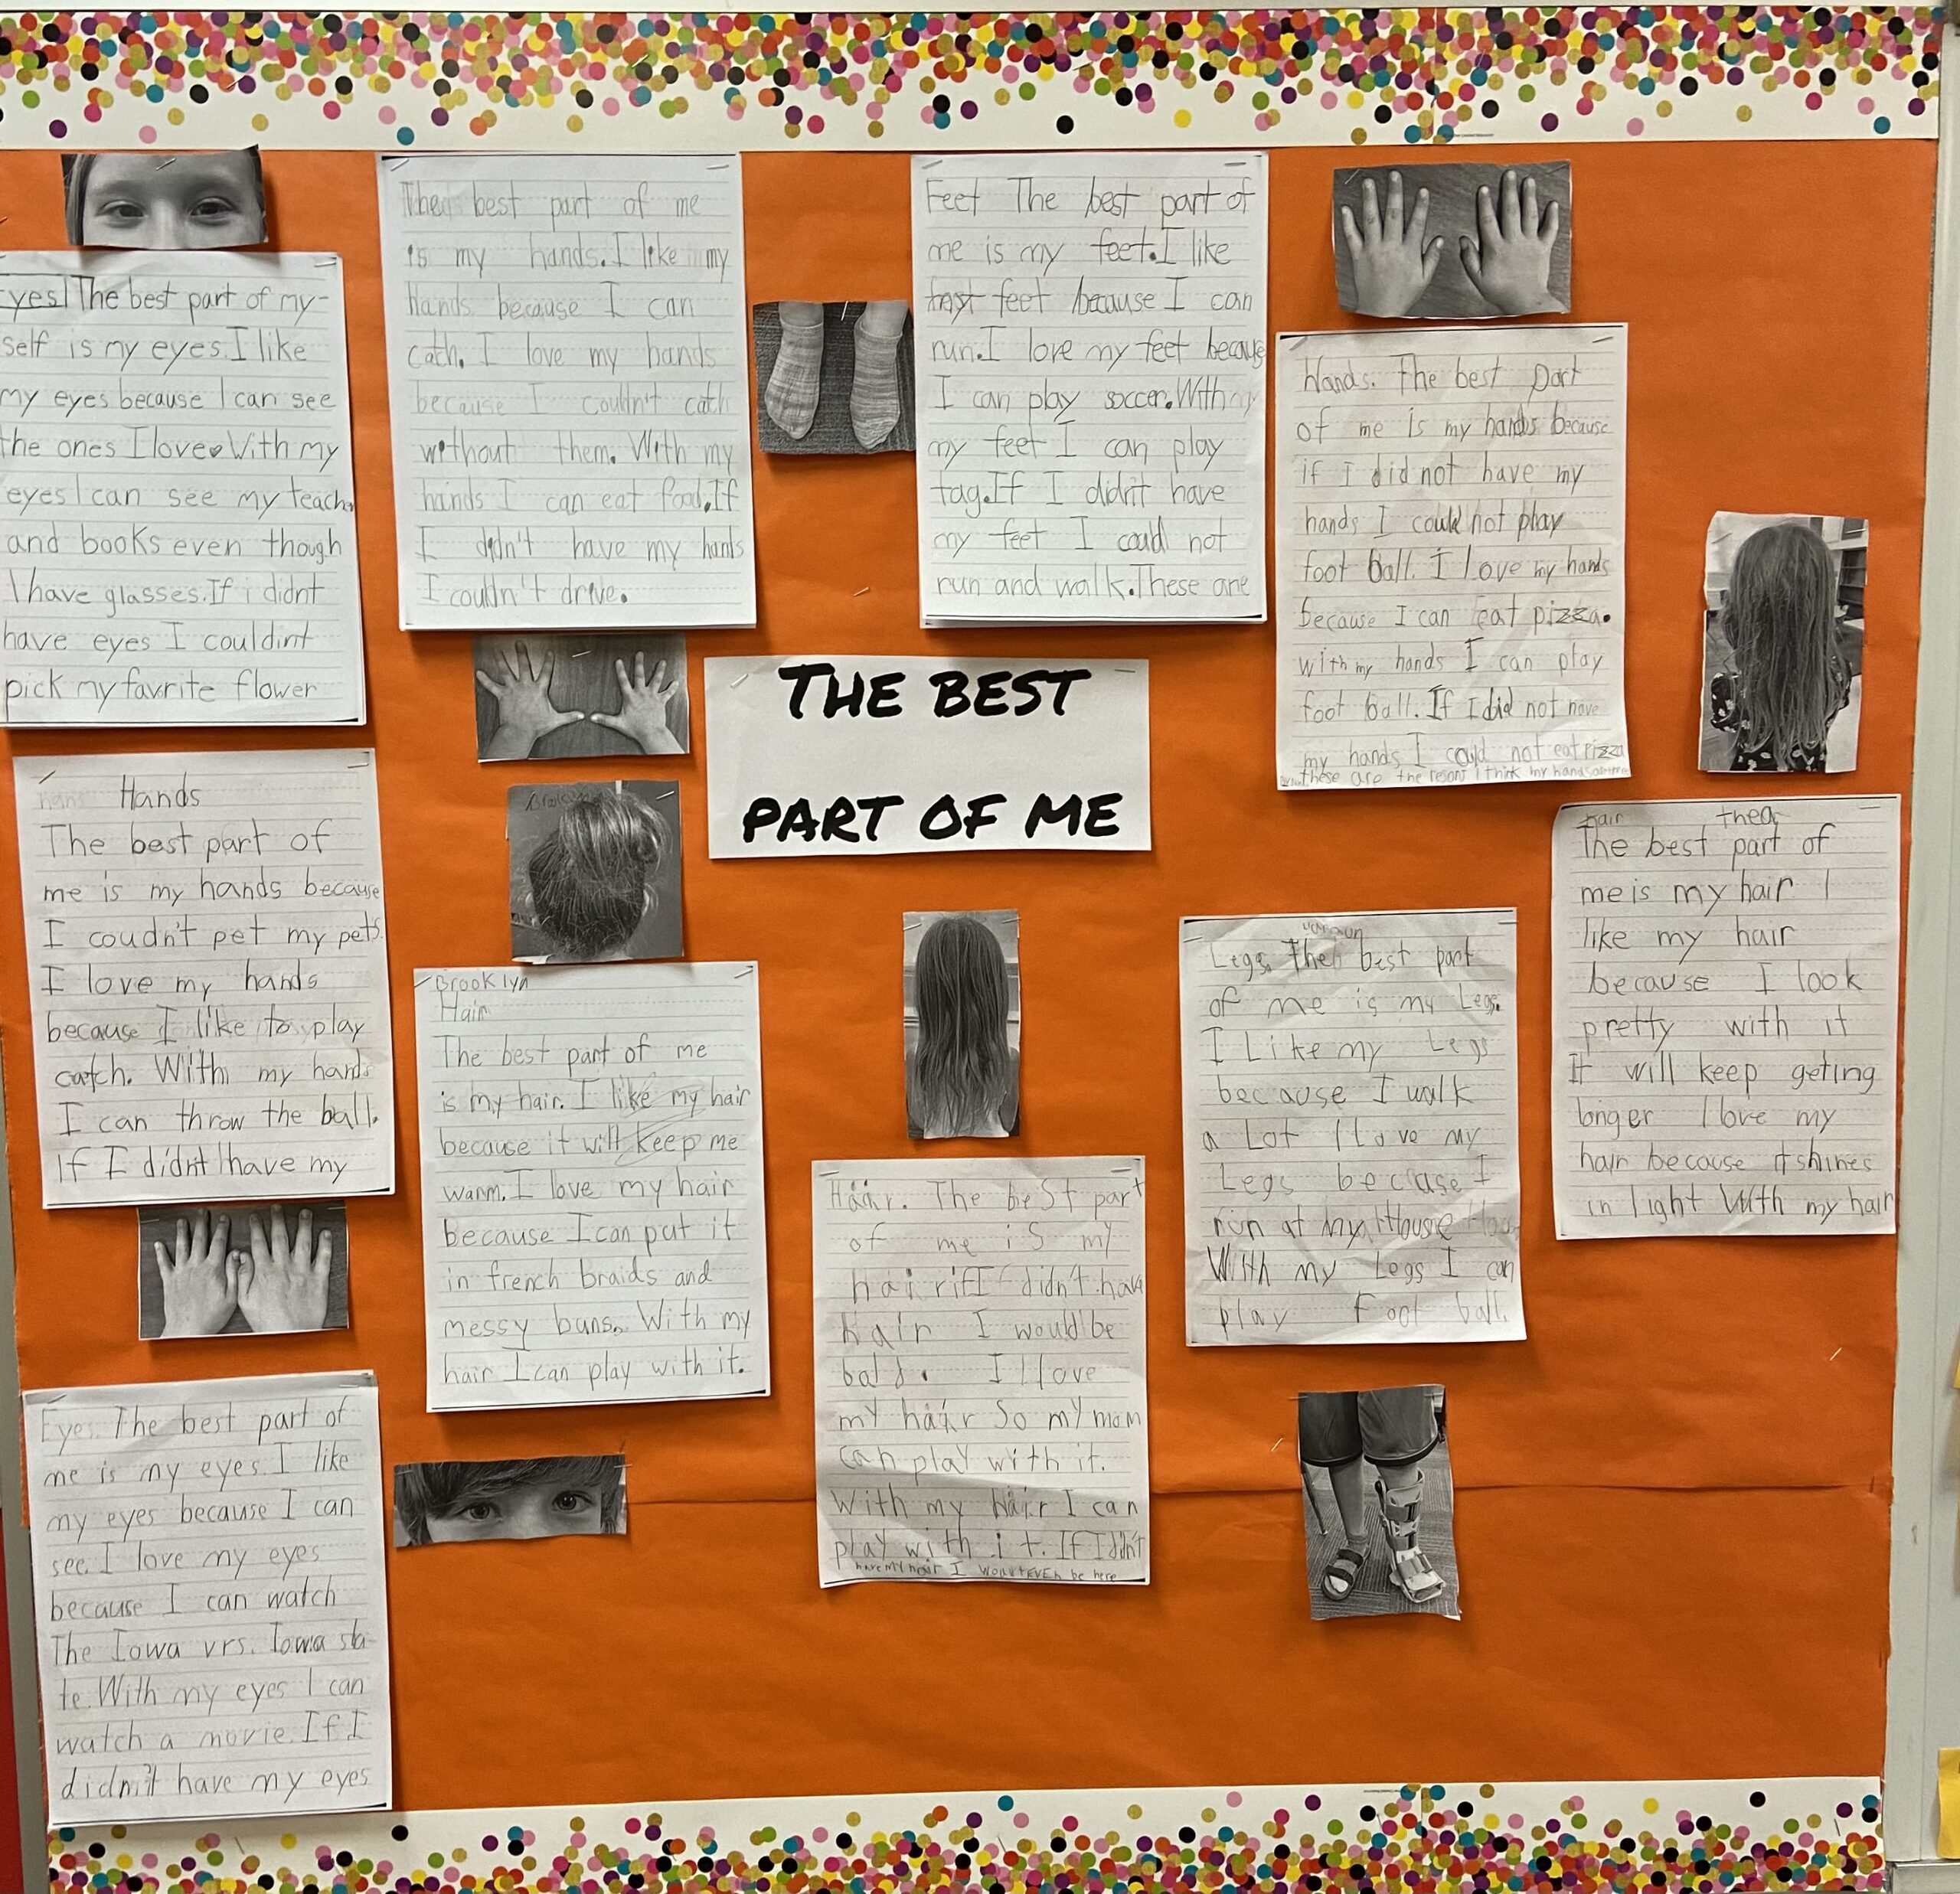 yes! The best part of my-
self is my eyes. I like
my eyes because I can see
the ones I love With my
eyes I can see my teach
and books even though
I have glasses. If i didnt
have eyes I couldint
pick my favrite flower
Hands
The best part of
me is my hands because
I coudn't pet my pets.
I love my hands
because I like to play
catch. With my hands
I can throw the ball.
If I didn't have my
Eyes. The best part of
me is my eyes. I like
my eyes because I can
see. I love my eyes
because I can watch
The Iowa vrs. Iowa sta-
te. With my eyes I can
watch a movie. If I
didn't have my eyes
The best part of me
is my hands. I like my
hands because I can
cath. I love my hands
because I couldn't cath
without them. With my
hands I can eat food. If
I didn't have my hands
I couldn't drive.
Brooklyn
Brooklyn
Hair
The best part of me
is my hair. I like my hair
because it will keep me
warm. I love my hair
because I can put it
in french braids and
messy buns. With my
hair I can play with it.
Feet The best part of
me is my feet. I like
feet because I can
run. I love my feet because
I can play soccer. With
my feet I can play
tag. If I didn't have
my feet I could not
run and walk. These are
THE BEST
PART OF ME
Hair. The beSt part
of me iS my
hair if I didn't have
hair I would be
bald. I love
my hair So my mom
can play with it.
With my hair I can
play with it. If I didn't
have my hair I be here
Hands. The best part
of me is my hands because
if I did not have my
hands I could not play
foot ball. I love my hands
because I can eat pizza.
with my hands I can play
foot ball. If I did not have
my hands I could not eat pizza
These are the resons I think my hands
Legs. The best part
of me is my Legs.
I Like my Legs
because I walk
a Lot I Love my
Legs because I
run at my House
With my Legs I can
play Foot ball.
hair thea
The best part of
me is my hair I
like my hair
because I look
pretty with it
It will keep geting
longer I love my
hair because it shines
in light With my hair